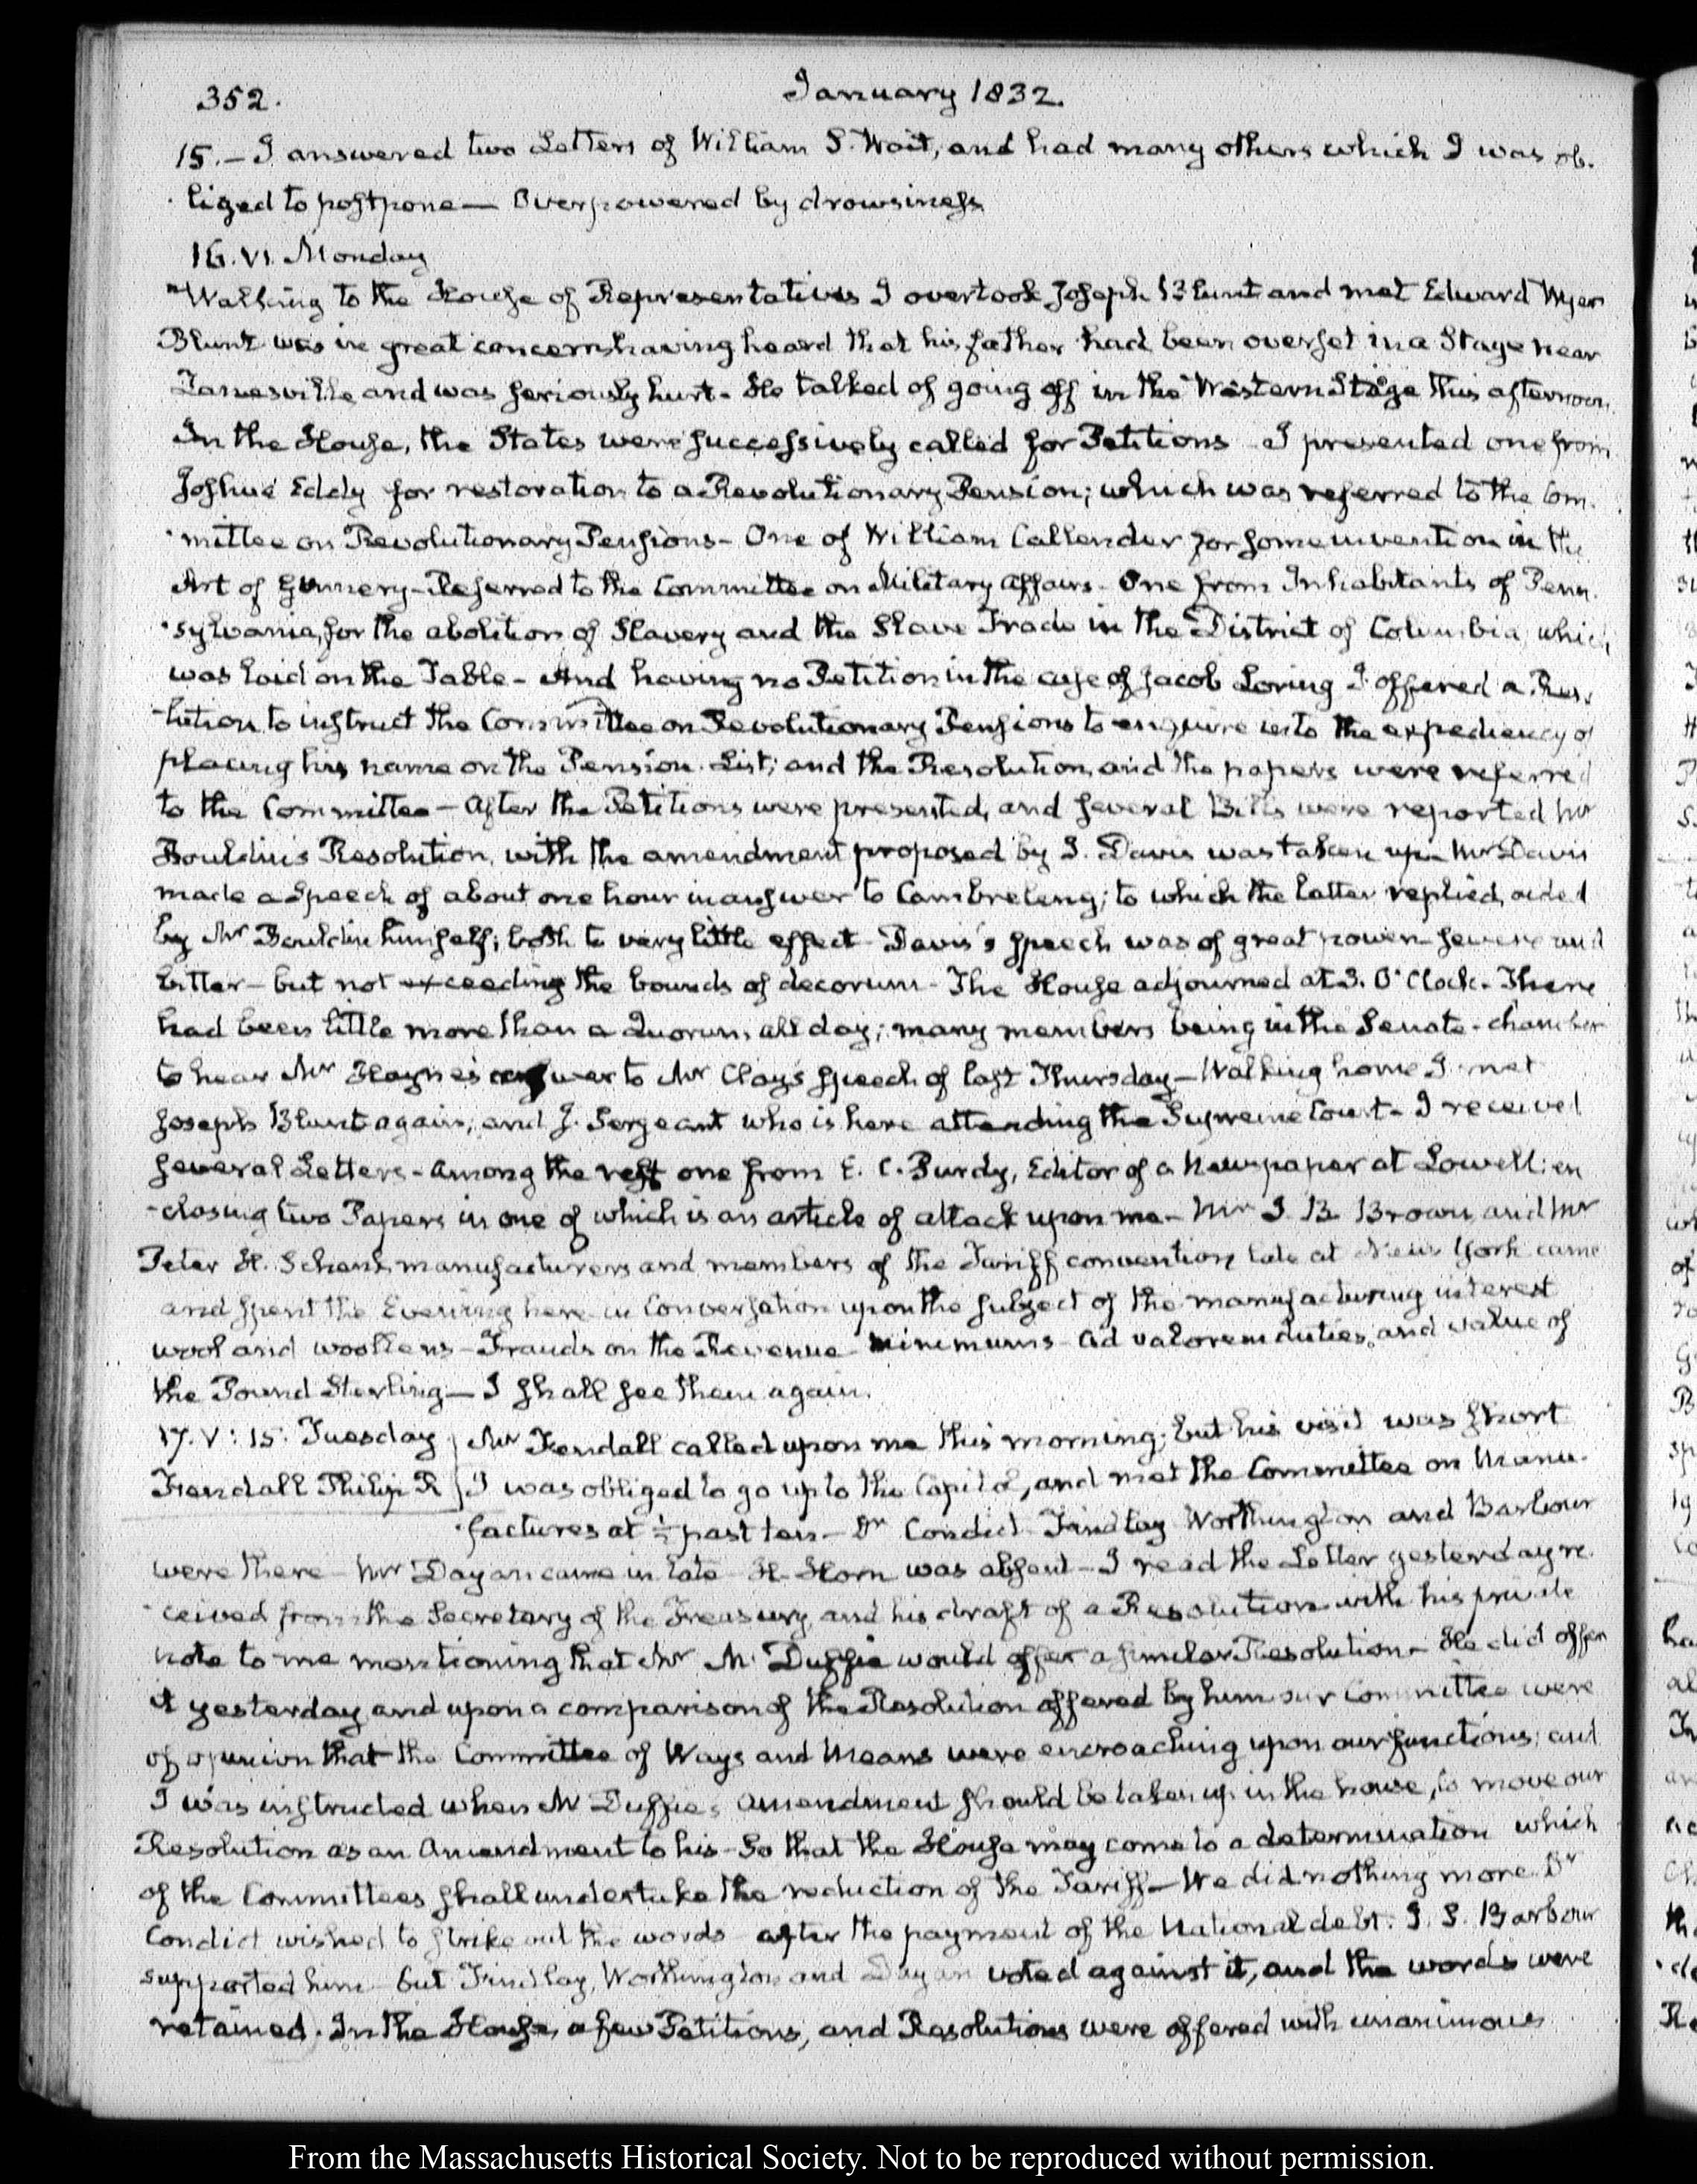 352. January 1832.
15.- I answered two Letters of William S. Wait, and had many others which I was ob-
liged to postpone — Overpowered by drowsiness
16. VI. Monday
Walking to the House of Representatives I overtook Joseph Blunt and met Edward Wyer
Blunt was in great concern having heard that his father had been overset in a Stage near
Zanesville and was seriously hurt- He talked of going off in the Western Stage this afternoon.
In the House, the States were successively called for Petitions I presented one from
Joshua Eddy for restoration to a Revolutionary Pension; which was referred to the Com-
mittee on Revolutionary Pensions- One of William Callender for some invention in the
Art of Gunnery- Referred to the Committee on Military Affairs- One from Inhabitants of Penn-
sylvania, for the abolition of Slavery and the Slave Trade in the District of Columbia, which
was laid on the Table- And having no Petition in the case of Jacob Loring I offered a Reso-
lution to instruct the Committee on Revolutionary Pensions to enquire into the expediency of
placing his name on the Pension List; and the Resolution, and the papers were referred
to the Committee- After the Petitions were presented, and several Bills were reported Mr
Bouldin's Resolution, with the amendment proposed by J. Davis was taken up- Mr Davis
made a Speech of about one hour in answer to Cambreleng; to which the latter replied, aided
by Mr Bouldin himself; both to very little effect- Davis's speech was of great power- severe and
bitter- but not exceeding the bounds of decorum- The House adjourned at 3. O'Clock- There
had been little more than a Quorum, all day; many members being in the Senate-chamber
to hear Mr Hayne's answer to Mr Clay's speech of last Thursday- Walking home I met
Joseph Blunt again, and J. Sergeant who is here attending the Supreme Court- I received
several Letters- Among the rest one from E. C. Purdy, Editor of a Newspaper at Lowell; en-
closing two Papers in one of which is an article of attack upon me- Mr J. B. Brown, and Mr
Peter H. Schenk manufacturers and members of the Tariff convention late at New York came
and spent the Evening here in Conversation upon the subject of the manufacturing interest
wool and woollens- Frauds on the Revenue- minimums- Ad valorem duties, and value of
the Pound Sterling- I shall see them again.
17. V: 15. Tuesday Mr Fendall called upon me this morning; but his visit was short
Fendall Philip R I was obliged to go up to the Capitol, and met the Committee on Manu-
factures at ½ past ten- Dr Condict Findlay Worthington and Barbour
were there- Mr Dayan came in late- H. Horn was absent- I read the Letter yesterday re-
ceived from the Secretary of the Treasury, and his draft of a Resolution with his private
note to me mentioning that Mr McDuffie would offer a similar Resolution- He did offer
it yesterday and upon a comparison of the Resolution offered by him our Committee were
of opinion that the Committee of Ways and Means were encroaching upon our functions; and
I was instructed when McDuffie's Amendment should be taken up in the house, to move our
Resolution as an Amendment to his- So that the House may come to a determination which
of the Committees shall undertake the reduction of the Tariff- We did nothing more- Dr
Condict wished to strike out the words after the payment of the National debt. J. S. Barbour
supported him- but Findlay, Worthington and Dayan voted against it, and the words were
retained. In the House, a few Petitions, and Resolutions were offered with unanimous
From the Massachusetts Historical Society. Not to be reproduced without permission.